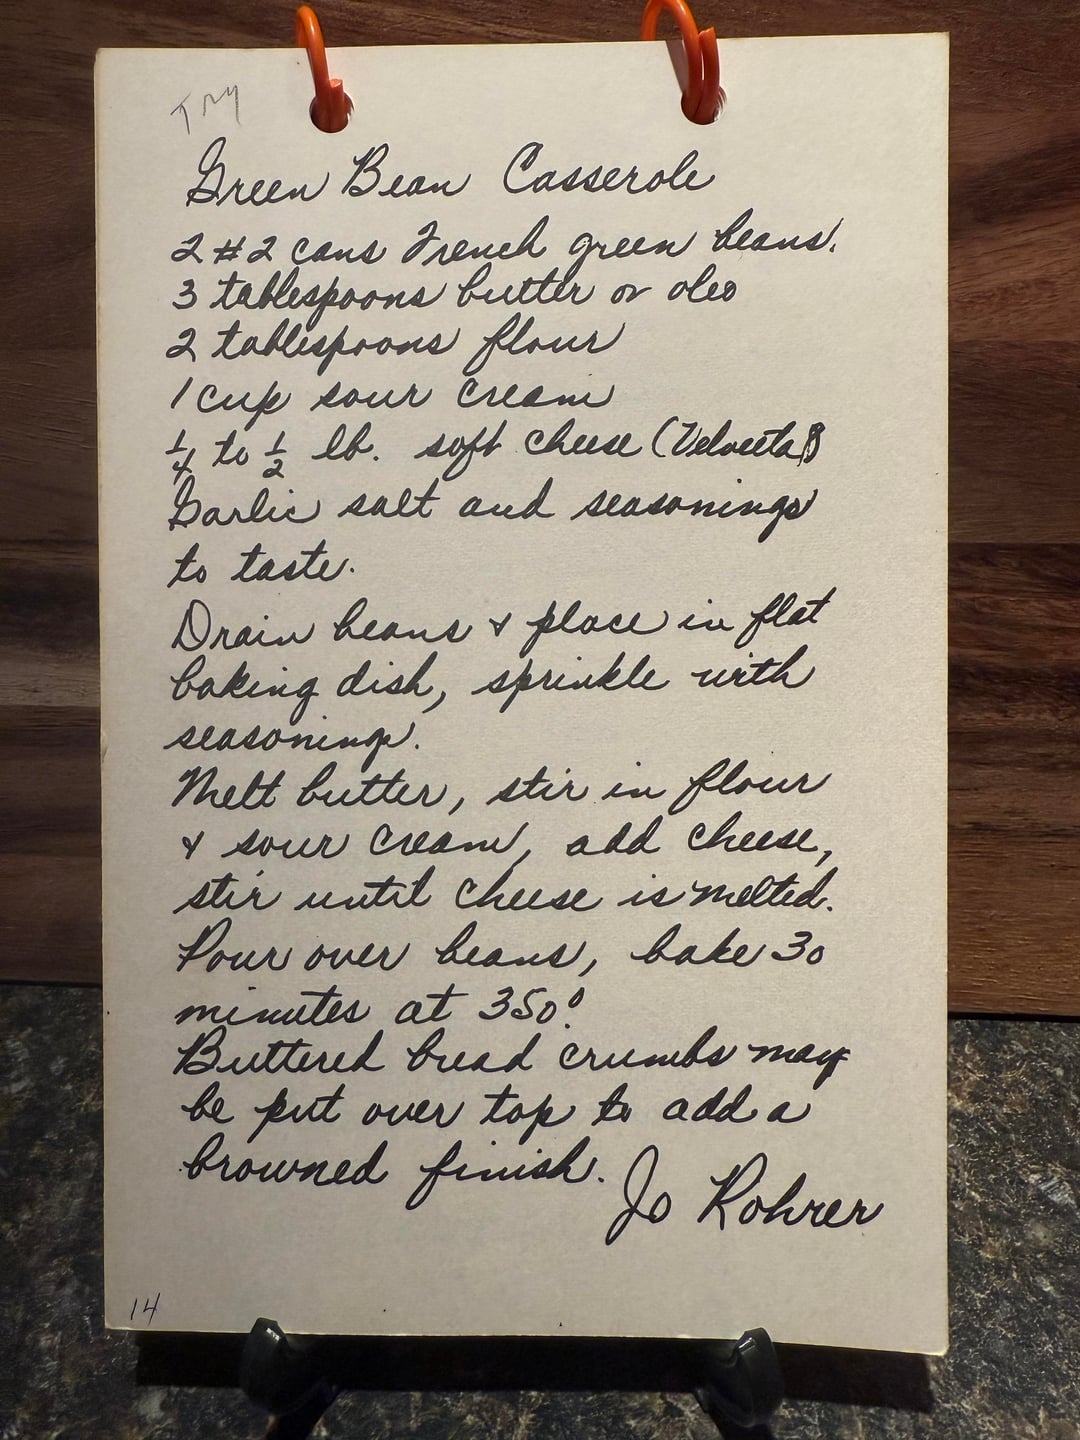 Try
Green Bean Casserole
2 #2 cans French green beans.
3 tablespoons butter or oleo
2 tablespoons flour
1 cup sour cream
1/4 to 1/2 lb. soft cheese (Velveeta)
Garlic salt and seasonings
to taste.
Drain beans & place in flat
baking dish, sprinkle with
seasonings.
Melt butter, stir in flour
& sour cream, add cheese,
stir until cheese is melted.
Pour over beans, bake 30
minutes at 350°.
Buttered bread crumbs may
be put over top to add a
browned finish.
Jo Rohrer
14